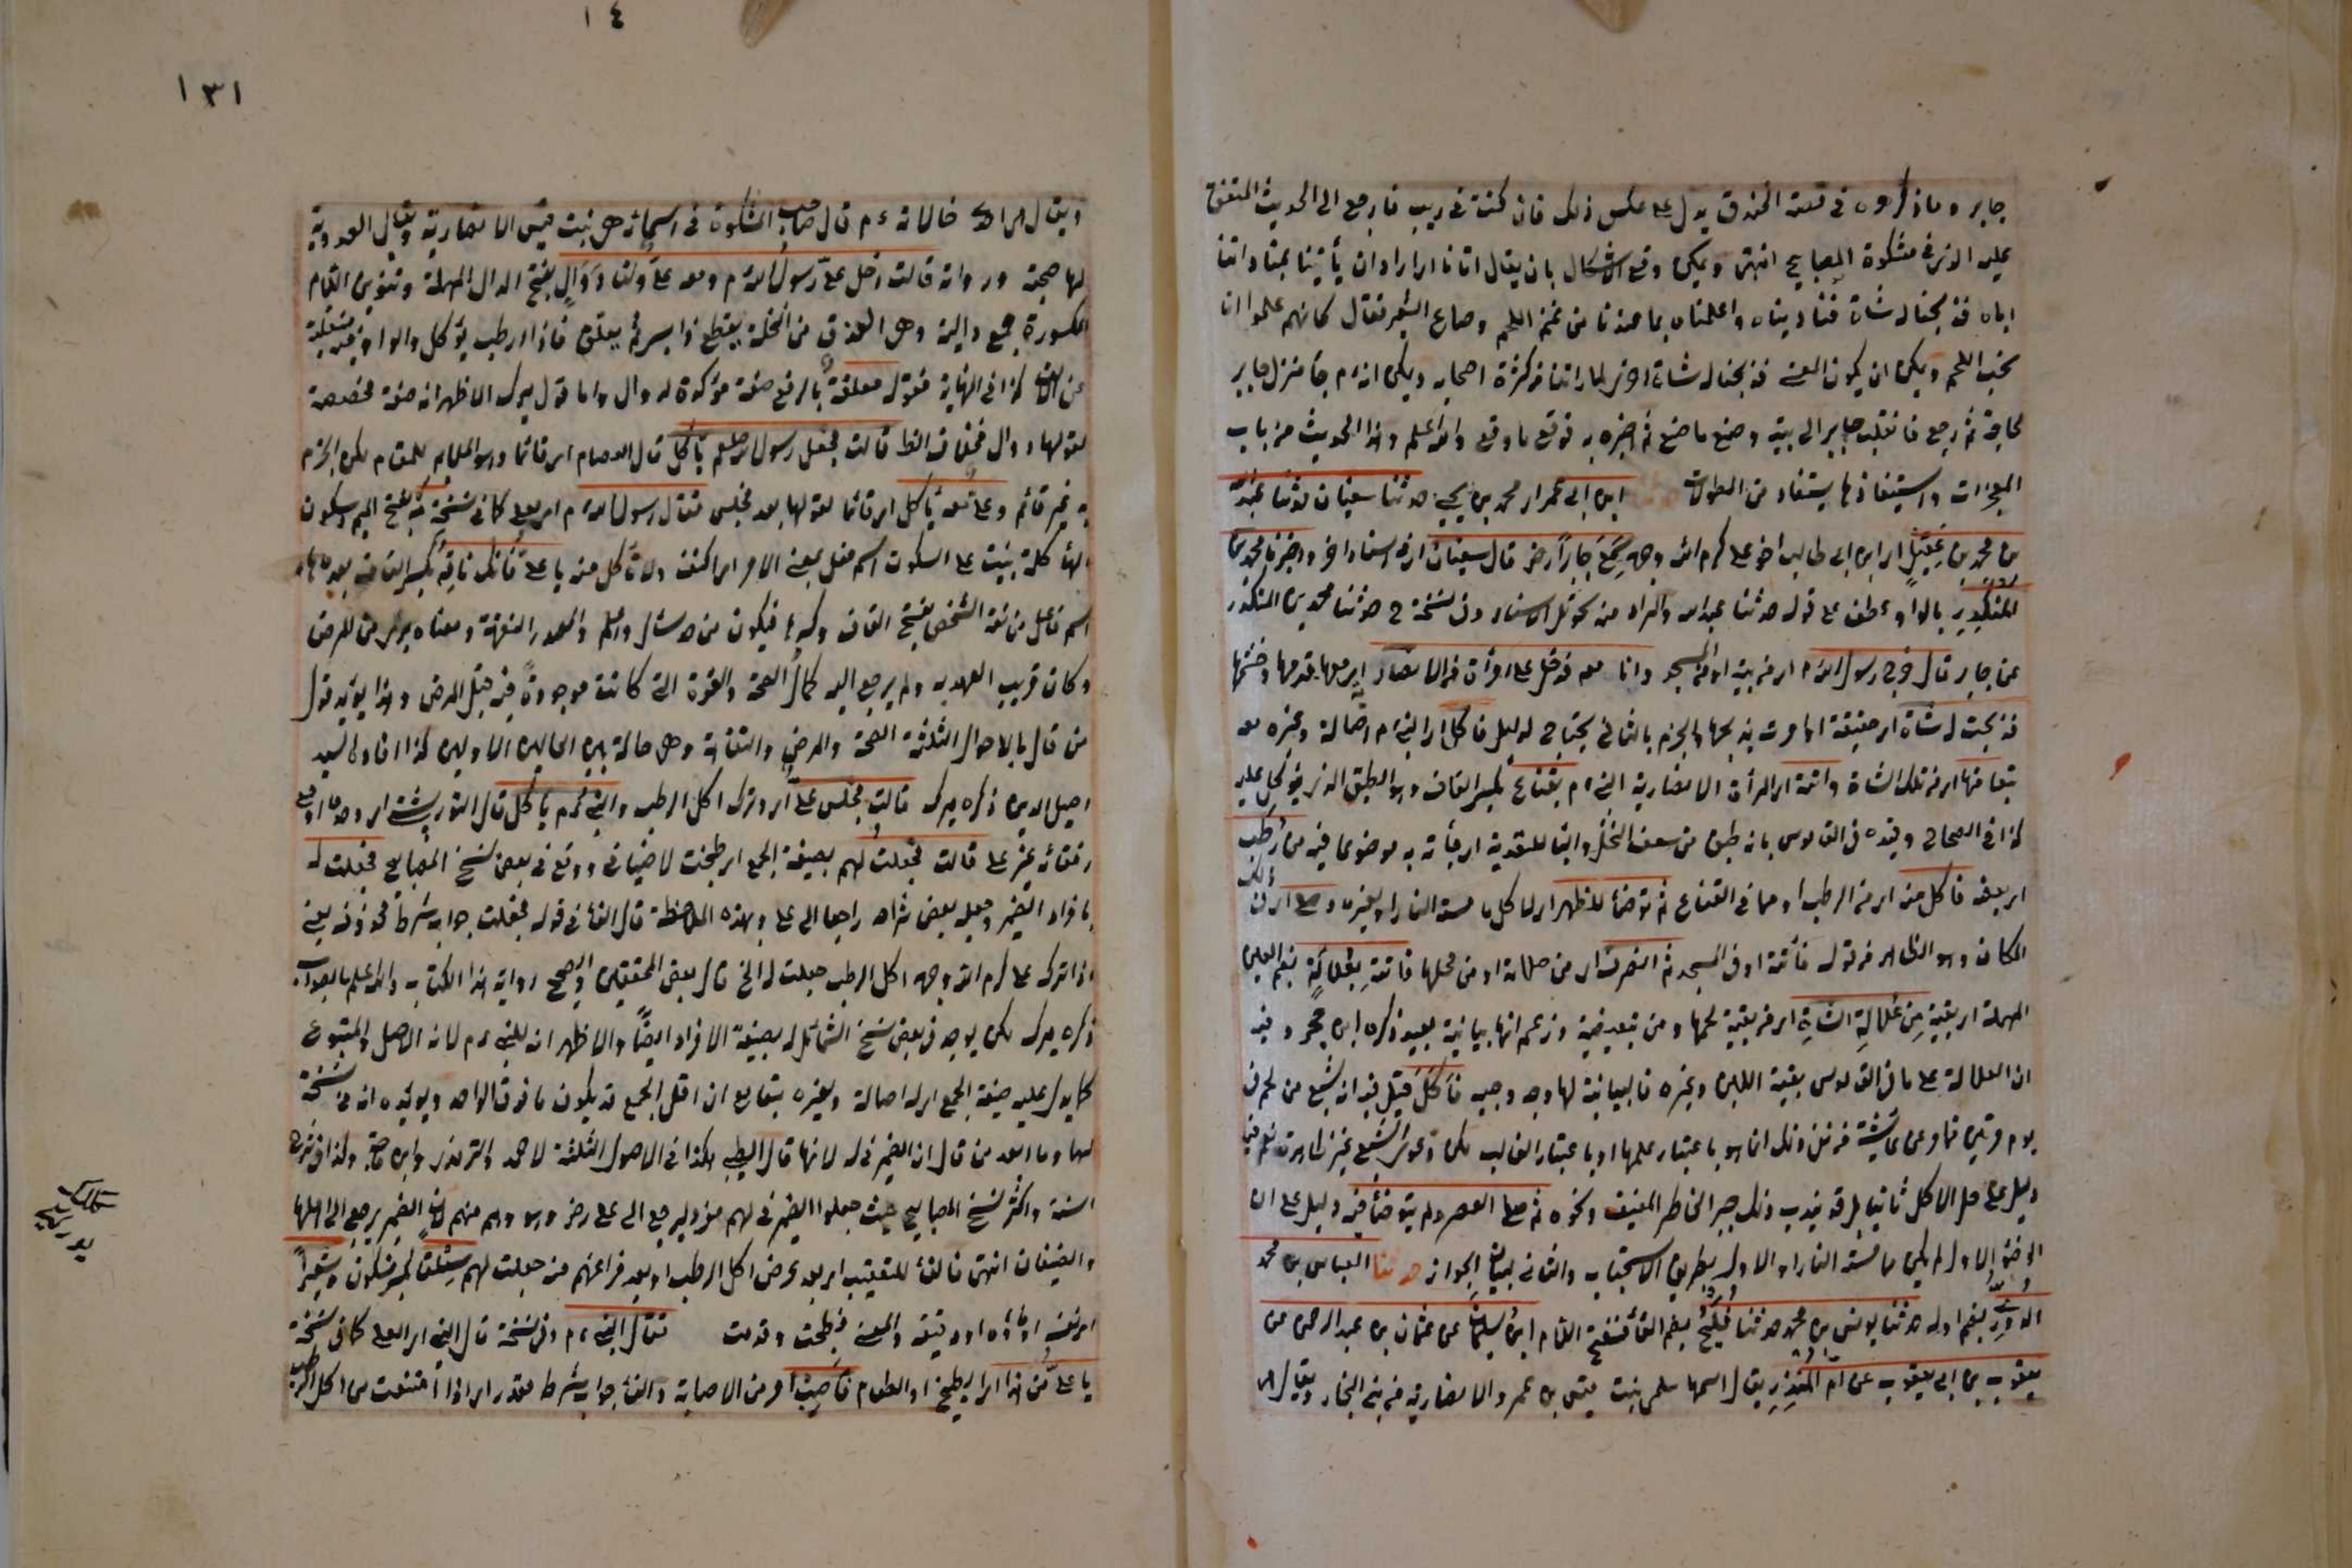 جابر وما ذكروه في قصة الخندق يدل على عكس ذلك فان كنت في ريب فارجع الى الحديث المتفق
عليه الذي في مشكوة المصابيح انتهى ويمكن دفع الاشكال بان يقال اتانا اي اراد ان يأتينا
اياه فذبحنا له شاة فناديناه واعلمناه بما عندنا من اللحم وصاع الشعير فقال كانهم علموا انا
نحب اللحم ويمكن ان يكون المعنى فذبحنا له شاة اخرى لما اتانا كثرة اصحابه ويمكن انه م جا منزل جابر
لحاجة ثم رجع فانقلب جابر الى بيته وصنع ما صنع ثم اخبره به فوقع ما وقع والله اعلم وهذا الحديث من باب
المعجزات
ابن ابي عمر اي محمد بن يحيى حدثنا سفيان
بن محمد بن عقيل اي ابن ابي طالب اخو علي كرم الله وجهه سمع جابرا رض قال سفيان
المنكدر بالواو عطف على قوله حدثنا عبد الله حدثنا محمد بن المنكدر
عن جابر قال خرج رسول الله م اي من بيته او من المسجد وانا معه فدخل على امرأة من الانصار
فذبحت له شاة اي حقيقة او امرت بذبحها والجزم بالثاني يحتاج لدليل فاكل اي النبي م اصالة وغيره معه
تبعا منها اي من تلك الشاة واتته اي المرأة الانصارية النبي م بقناع بكسر القاف وهو الطبق الذي يؤكل عليه
كذا في الصحاح وقيده في القاموس بانه طبق من سعف النخل والباء للتعدية اي جأته به موضوعا فيه من رطب
اي بعضه فاكل منه اي من الرطب او مما في القناع ثم توضأ للظهر
المكان وهو الظاهر من قوله فأتته او في المسجد ثم انصرف اي من صلاته او من محلها فاتته بعلالة بضم العين
المهملة اي بقية من علالة الشاة اي من بقية لحمها ومن تبعيضية وزعم انها بيانية بعيد ذكره ابن حجر وفيه
ان العلالة على ما في القاموس بقية اللبن وغيره فالبيانية لها وجه وجيه فأكل قيل فيه انه شبع من لحم في
يوم مرتين فما مر عن عائشة من نفي ذلك انما هو باعتبار علمها او باعتبار الغالب لكن دعوى الشبع غير ظاهرة
دليل على حل الاكل ثانيا بل قد يندب ذلك جبر الخاطر المضيف ونحوه ثم صلى العصر ولم يتوضأ فيه دليل على ان
الوضوء الاول لم يكن مما مسته النار او الاول بطريق الاستحباب والثاني لبيان الجواز حدثنا العباس بن محمد
الدوري بضم اوله حدثنا يونس بن محمد حدثنا فليح بضم الفاء ففتح اللام ابن سليمان عن عثمان بن عبد الرحمن عن
يعقوب بن ابي يعقوب عن ام المنذر يقال اسمها سلمى بنت قيس بن عمرو الانصارية من بني النجار ويقال
١٤
١٣١
خالاته م قال صاحب المشكوة في اسمائه هي بنت قيس الانصارية ويقال العدوية
لها صحبة ورواية قالت دخل علي رسول الله م ومعه علي ولنا دوال بفتح الدال المهملة وتنوين اللام
المكسورة جمع دالية وهي العذق من النخلة يقطع ذا بسر ثم يعلق فاذا ارطب يؤكل والواو فيه منقلبة
عن الالف كذا في النهاية فقوله معلقة بالرفع صفة مؤكدة لدوال واما قول ميرك الاظهر انه صفة مخصصة
لقولها دوال قالت فجعل رسول الله صلعم يأكل قال العصام اي قائما وهو الملايم للمقام لكن الجزم
به غير قائم وعلي معه يأكل اي قائما لقولها بعد فجلس فقال رسول الله م لعلي كما في نسخة مه بفتح الميم وسكون
الهاء كلمة بنيت على السكون اسم فعل بمعنى الامر اي اكفف ولا تأكل منه يا علي فانك ناقه بكسر القاف بعده هاء
اسم فاعل من نقه الشخص بفتح القاف وكسرها فيكون من حد سأل وعلم والمصدر النقهة ومعناه برئ من المرض
وكان قريب العهد به ولم يرجع اليه كمال الصحة والقوة التي كانت موجودة فيه قبل المرض وهذا يؤيد قول
من قال بالاحوال الثلثة الصحة والمرض والنقاهة وهي حالة بين الحالين الاولين كذا افاده السيد
اصيل الدين ذكره ميرك قالت فجلس علي اي وترك اكل الرطب والنبي م يأكل قال التوربشتي اي وحده او مع
رفقائه غير علي قالت فجعلت لهم بصيغة الجمع اي طبخت لاضيافي ووقع في بعض نسخ المصابيح فجعلت له
بافراد الضمير وجعله بعض شراحه راجعا الى علي وبهذه الملاحظة قال الفاء في قوله فجعلت جواب شرط محذوف يعني
اذا ترك علي كرم الله وجهه اكل الرطب جعلت له الخ قال بعض المحققين والصحيح رواية هذا الكتاب والله اعلم بالصواب
ذكره ميرك لكن يوجد في بعض نسخ الشمائل له بصيغة الافراد ايضا والاظهر انه للنبي م لانه الاصل والمتبوع
كما يدل عليه صيغة الجمع اي له اصالة ولغيره تبعا مع ان اقل الجمع قد يكون ما فوق الواحد ويؤيده انه في نسخة
لهما وما ابعد من قال ان الضمير في له لابنها قال الطيبي هكذا في الاصول الثلثة لاحمد والترمذي وابن ماجة وكذا في شرح
السنة واكثر نسخ المصابيح حيث جعلوا الضمير في لهم مفردا ليرجع الى علي رض وهو وهم منهم لان الضمير يرجع الى اهلها
والضيفان انتهى فالفاء للتعقيب اي بعد عرض اكل الرطب او بعد فراغهم منه جعلت لهم سلقا بكسر فسكون وشعيرا
اي نفسه او ماؤه او دقيقه والمعنى فطبخت وقدمت فقال النبي م وفي نسخة قال النبي اي لعلي كما في نسخة
يا علي من هذا اي الطبيخ او الطعام فأصب امر من الاصابة والفاء جواب شرط مقدر اي اذا امتنعت من اكل الرطب